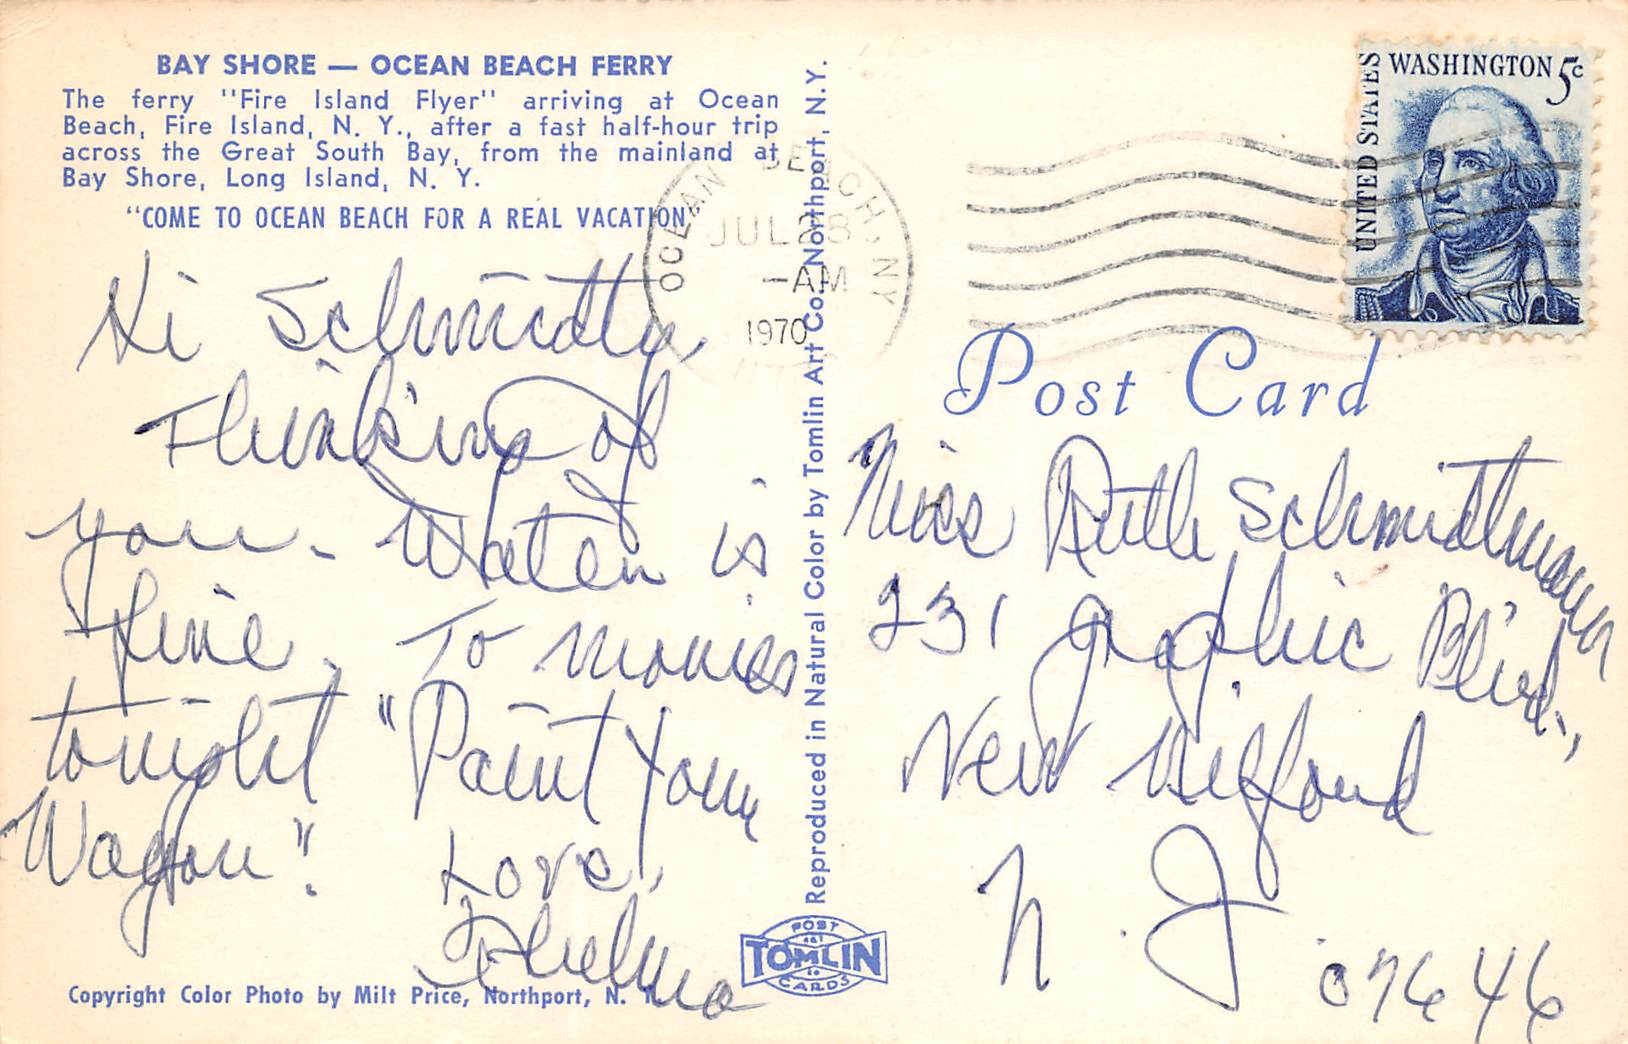 BAY SHORE — OCEAN BEACH FERRY
The ferry "Fire Island Flyer" arriving at Ocean
Beach, Fire Island, N. Y., after a fast half-hour trip
across the Great South Bay, from the mainland at
Bay Shore, Long Island, N. Y.
"COME TO OCEAN BEACH FOR A REAL VACATION"
Hi Schmidtly,
Thinking of
you - Water is
fine. To movies
tonight "Paint Your
Wagon"!
Love,
Thelma
Copyright Color Photo by Milt Price, Northport, N. Y.
Reproduced in Natural Color by Tomlin Art Co., Northport, N.Y.
POST
TOMLIN
CARDS
OCEAN BEACH, NY
JUL 28
-AM
1970
UNITED STATES
WASHINGTON 5c
Post Card
Miss Ruth Schmidtmann
231 Graphic Blvd.,
New Milford
N. J. 07646